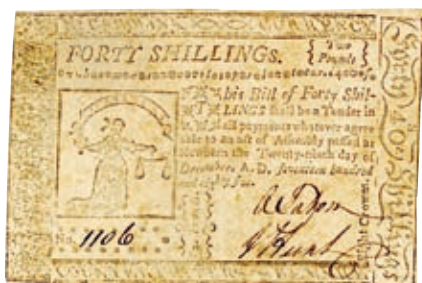 FORTY SHILLINGS.
Two
Pounds
This Bill of Forty Shil-
LINGS shall be a Tender in
all payments whatever agree
able to an act of Assembly passed
the Twenty-ninth day of
December, A. D. Seventeen hundred
and eighty
No. 1106
Hunt
Eight Crowns.
Forty Shillings